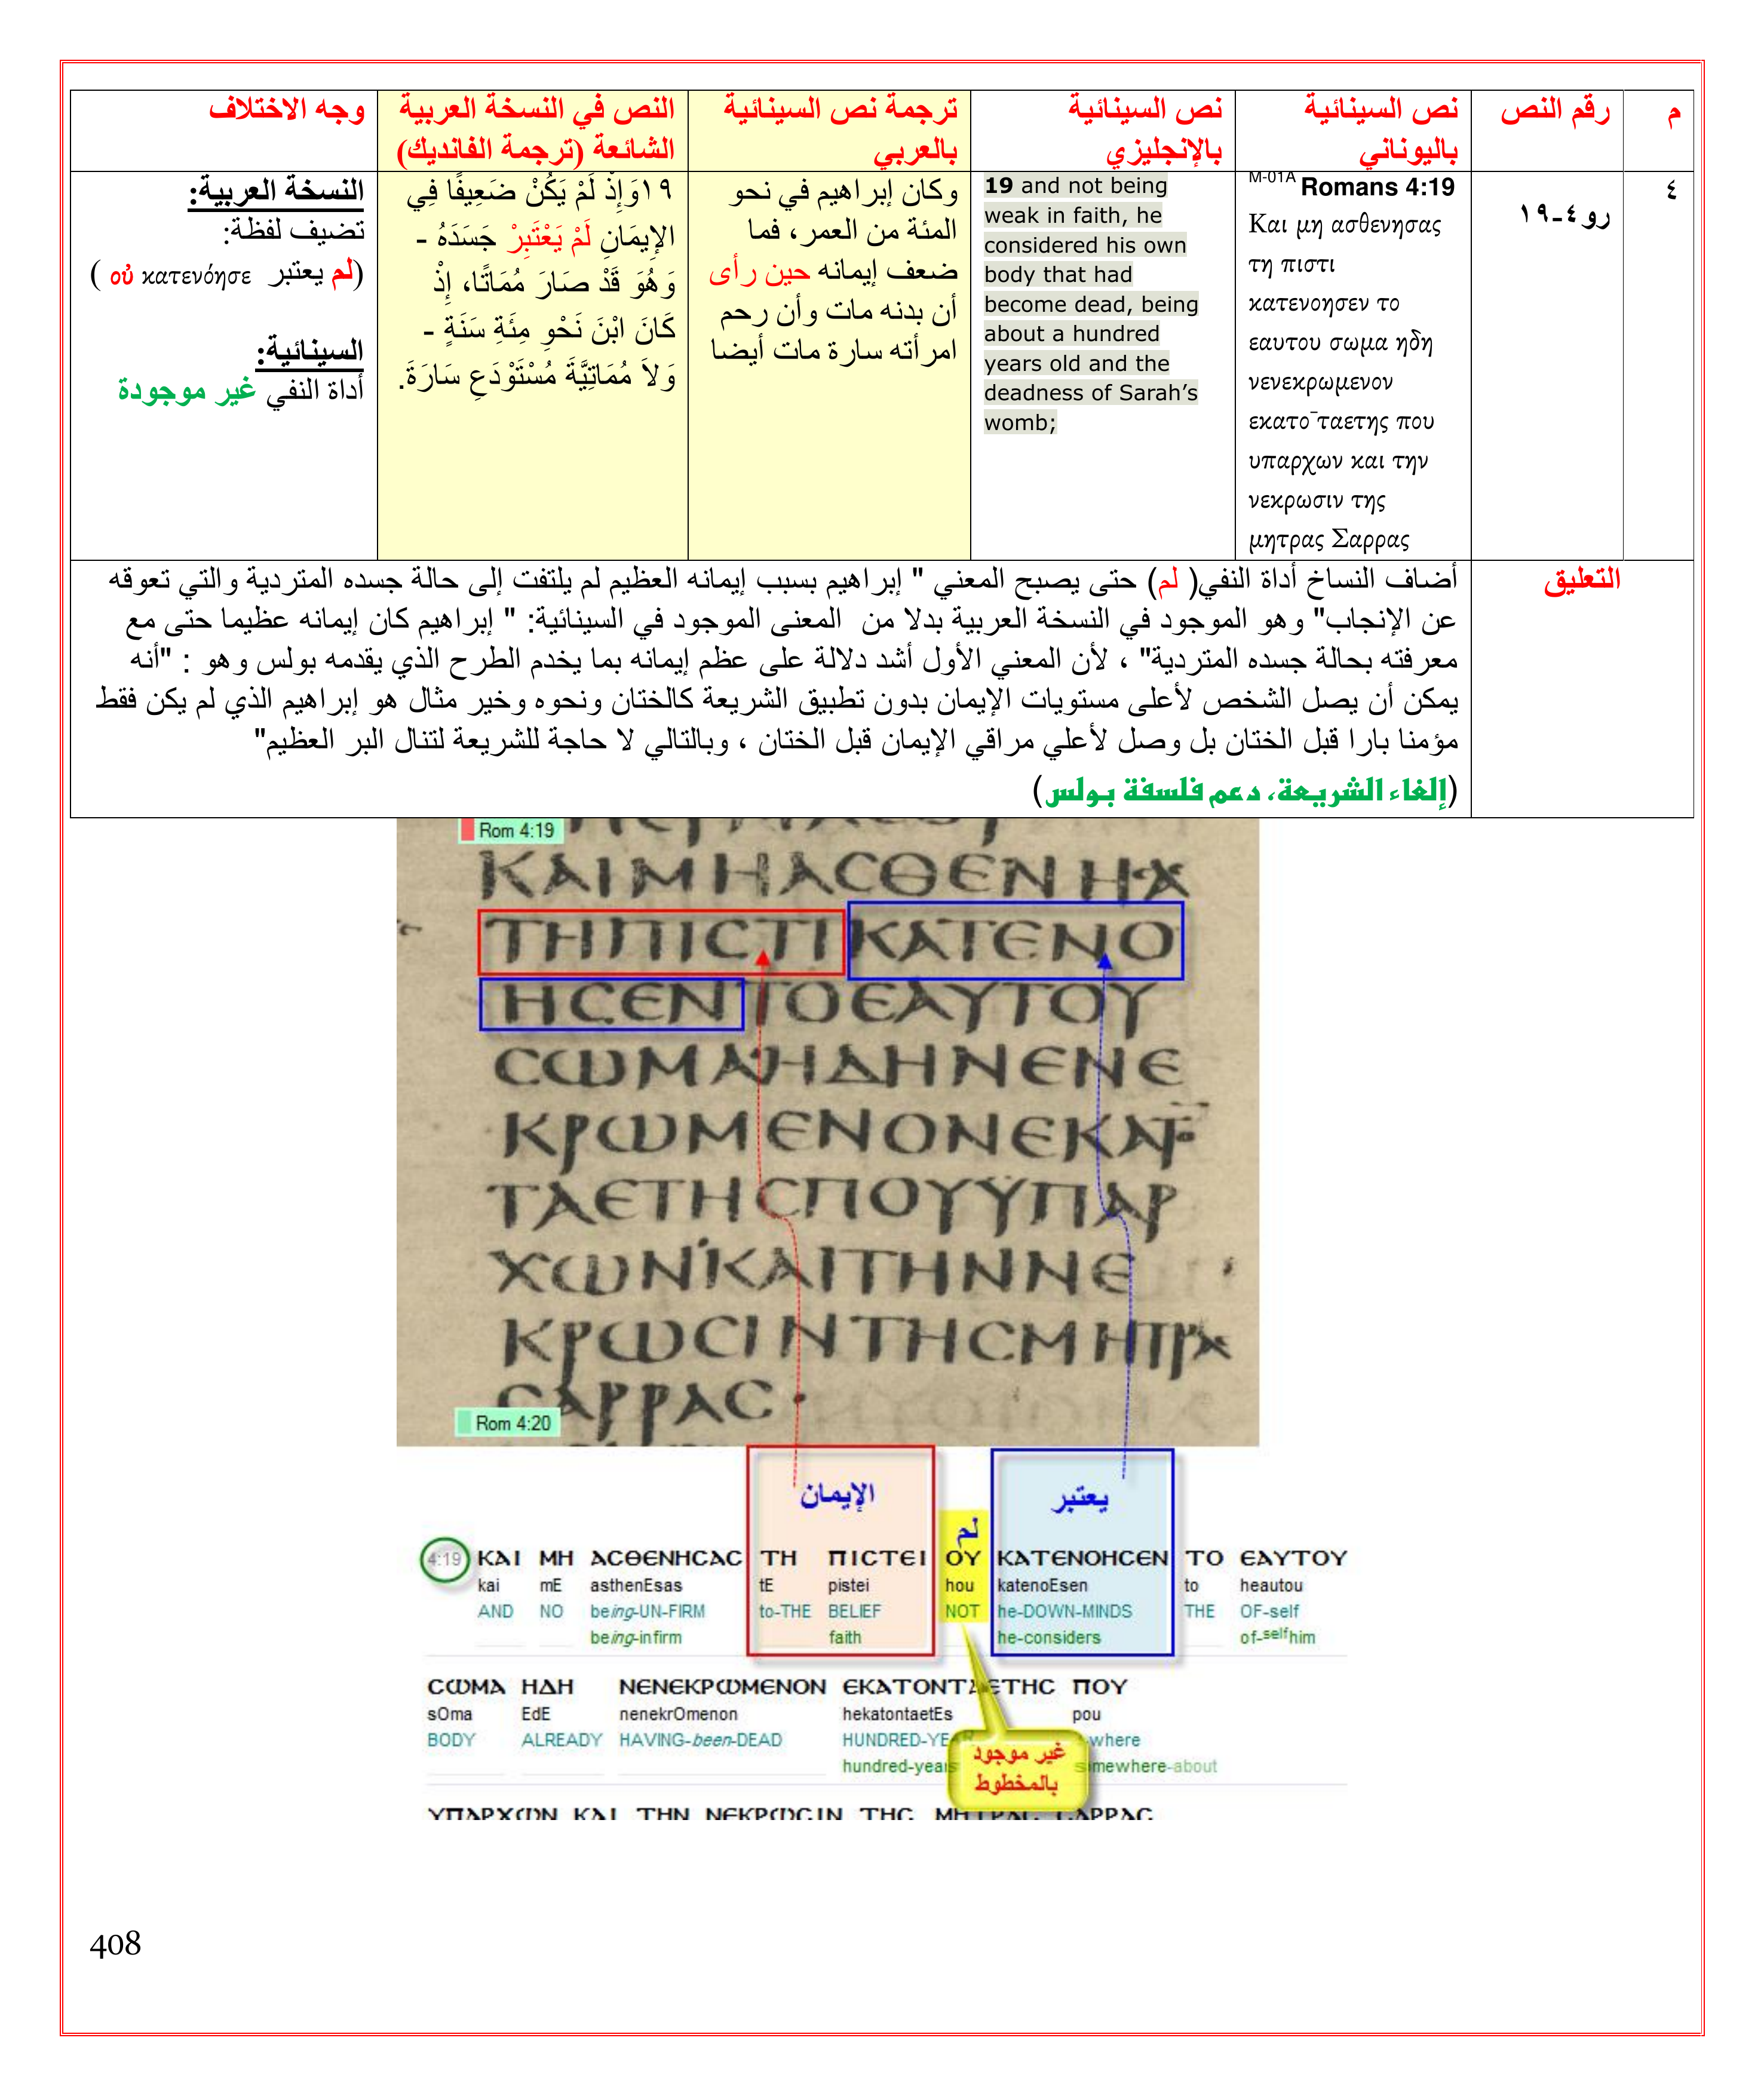 م
رقم النص
نص السينائية
باليوناني
نص السينائية
بالإنجليزي
ترجمة نص السينائية
بالعربي
النص في النسخة العربية
الشائعة (ترجمة الفانديك)
وجه الاختلاف
٤
رو٤-١٩
M-01A Romans 4:19
Και μη ασθενησας
τη πιστι
κατενοησεν το
εαυτου σωμα ηδη
νενεκρωμενον
εκατο¯ταετης που
υπαρχων και την
νεκρωσιν της
μητρας Σαρρας
19 and not being
weak in faith, he
considered his own
body that had
become dead, being
about a hundred
years old and the
deadness of Sarah’s
womb;
وكان إبراهيم في نحو
المئة من العمر، فما
ضعف إيمانه حين رأى
أن بدنه مات وأن رحم
امرأته سارة مات أيضا
١٩وَإِذْ لَمْ يَكُنْ ضَعِيفًا فِي
الإِيمَانِ لَمْ يَعْتَبِرْ جَسَدَهُ -
وَهُوَ قَدْ صَارَ مُمَاتًا، إِذْ
كَانَ ابْنَ نَحْوِ مِئَةِ سَنَةٍ -
وَلاَ مُمَاتِيَّةَ مُسْتَوْدَعِ سَارَةَ.
النسخة العربية:
تضيف لفظة:
(لم يعتبر οὐ κατενόησε )
السينائية:
أداة النفي غير موجودة
التعليق
أضاف النساخ أداة النفي( لم) حتى يصبح المعني " إبراهيم بسبب إيمانه العظيم لم يلتفت إلى حالة جسده المتردية والتي تعوقه
عن الإنجاب" وهو الموجود في النسخة العربية بدلا من المعنى الموجود في السينائية: " إبراهيم كان إيمانه عظيما حتى مع
معرفته بحالة جسده المتردية" ، لأن المعني الأول أشد دلالة على عظم إيمانه بما يخدم الطرح الذي يقدمه بولس وهو : "أنه
يمكن أن يصل الشخص لأعلى مستويات الإيمان بدون تطبيق الشريعة كالختان ونحوه وخير مثال هو إبراهيم الذي لم يكن فقط
مؤمنا بارا قبل الختان بل وصل لأعلي مراقي الإيمان قبل الختان ، وبالتالي لا حاجة للشريعة لتنال البر العظيم"
(إلغاء الشريعة، دعم فلسفة بولس)
Rom 4:19
ΚΑΙΜΗΑСΘЄΝΗС
ΤΗΠΙСΤΙΚΑΤЄΝΟ
ΗСЄΝΤΟЄΑΥΤΟΥ
СωΜΑΗΔΗΝЄΝЄ
ΚΡωΜЄΝΟΝЄΚΑΤΟ
ΤΑЄΤΗСΠΟΥΫΠΑΡ
ΧωΝΚΑΙΤΗΝΝЄ
ΚΡωСΙΝΤΗСΜΗΤΡΑ
СΑΡΡΑС·
Rom 4:20
الإيمان
لم
يعتبر
4:19 ΚΑΙ ΜΗ ΑСΘЄΝΗСΑС ΤΗ ΠΙСΤЄΙ ΟΥ ΚΑΤЄΝΟΗСЄΝ ΤΟ ЄΑΥΤΟΥ
kai mE asthenEsas tE pistei hou katenoEsen to heautou
AND NO being-UN-FIRM to-THE BELIEF NOT he-DOWN-MINDS THE OF-self
being-infirm faith he-considers of-selfhim
СωΜΑ ΗΔΗ ΝЄΝЄΚΡωΜЄΝΟΝ ЄΚΑΤΟΝΤΑЄΤΗС ΠΟΥ
sOma EdE nenekrOmenon hekatontaetEs pou
BODY ALREADY HAVING-been-DEAD HUNDRED-YEAR -where
hundred-years somewhere-about
غير موجود
بالمخطوط
ΥΠΑΡΧωΝ ΚΑΙ ΤΗΝ ΝЄΚΡωСΙΝ ΤΗС ΜΗΤΡΑС СΑΡΡΑС
408